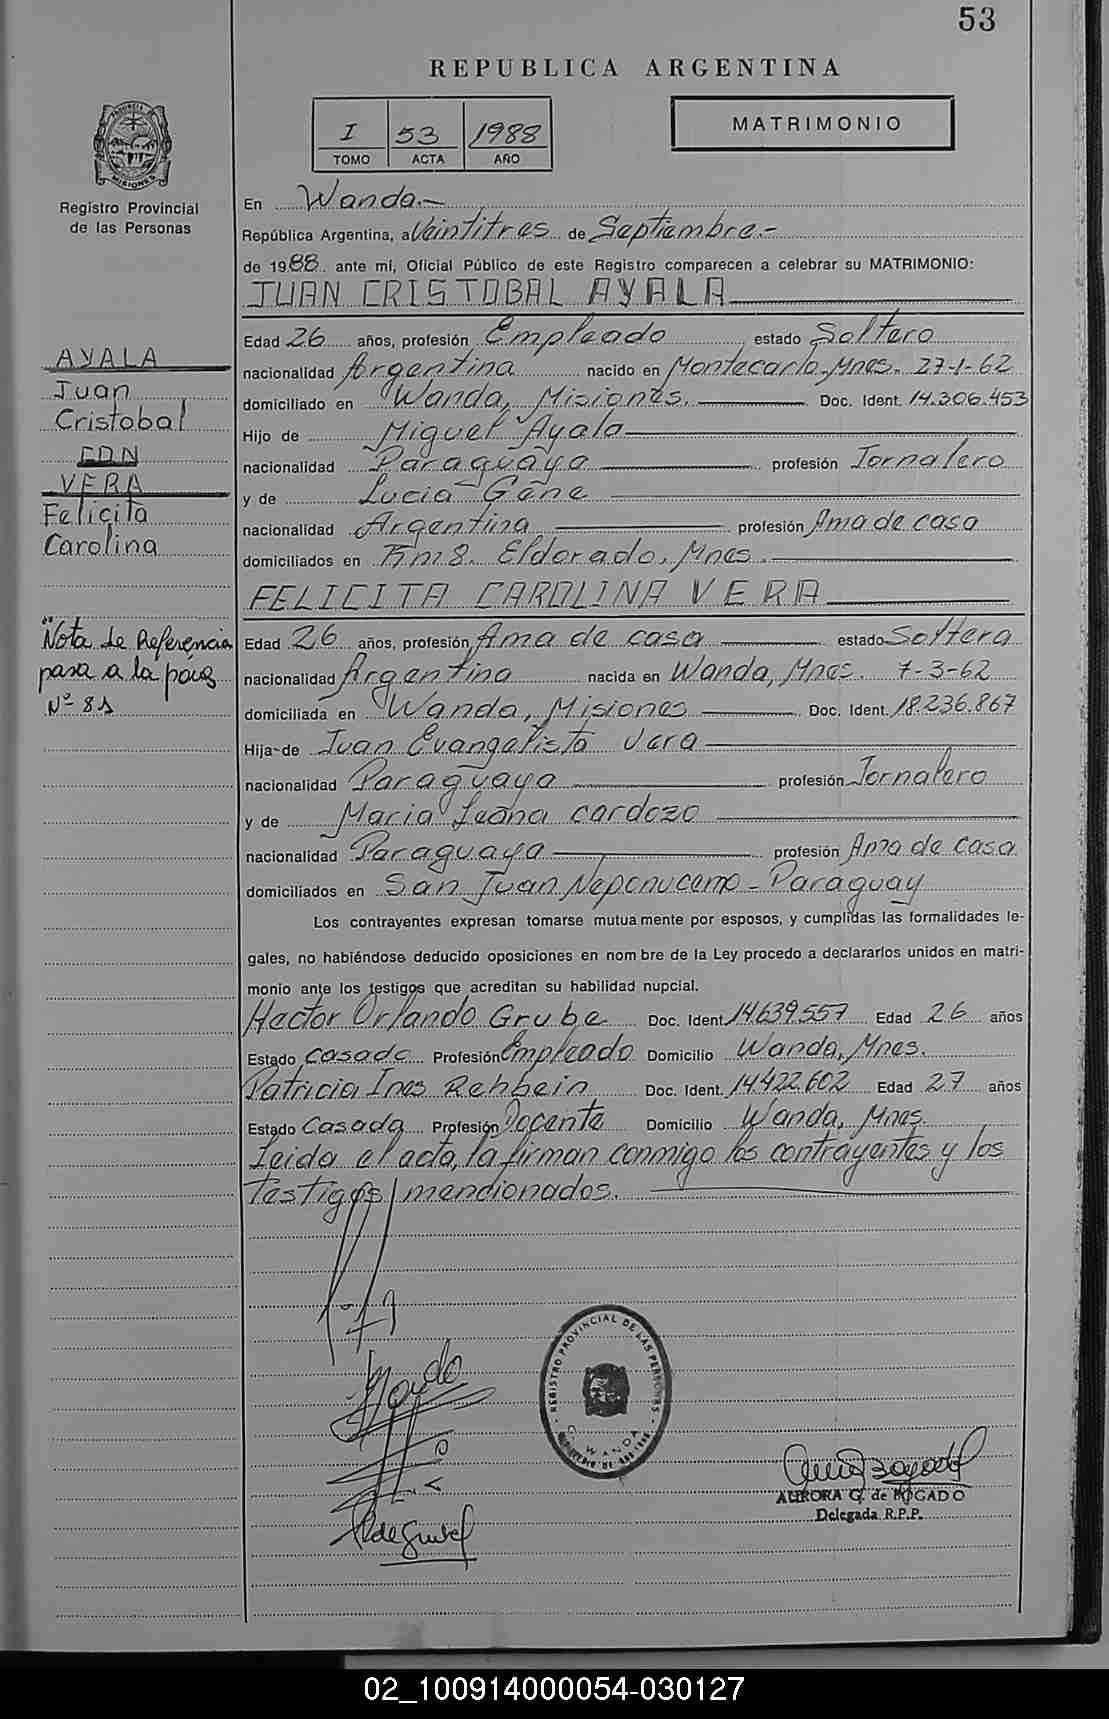 53
REPUBLICA ARGENTINA
I 53 1988
TOMO ACTA AÑO
MATRIMONIO
PROVINCIA DE MISIONES
Registro Provincial
de las Personas
En Wanda.-
República Argentina, a Veintitres de Septiembre.-
de 1988 ante mí, Oficial Público de este Registro comparecen a celebrar su MATRIMONIO:
JUAN CRISTOBAL AYALA
Edad 26 años, profesión Empleado estado Soltero
nacionalidad Argentina nacido en Montecarlo-Mnes. 27-1-62
domiciliado en Wanda, Misiones. Doc. Ident. 14.306.453
Hijo de Miguel Ayala
nacionalidad Paraguaya profesión Jornalero
y de Lucia Gene
nacionalidad Argentina profesión Ama de casa
domiciliados en Km 8. Eldorado, Mnes.
FELICITA CAROLINA VERA
Edad 26 años, profesión Ama de casa estado Soltera
nacionalidad Argentina nacida en Wanda, Mnes. 7-3-62
domiciliada en Wanda, Misiones Doc. Ident. 18.236.867
Hija de Juan Evangelista Vera
nacionalidad Paraguaya profesión Jornalero
y de Maria Leona Cardozo
nacionalidad Paraguaya profesión Ama de casa
domiciliados en San Juan Neponuceno - Paraguay
Los contrayentes expresan tomarse mutuamente por esposos, y cumplidas las formalidades le-
gales, no habiéndose deducido oposiciones en nombre de la Ley procedo a declararlos unidos en matri-
monio ante los testigos que acreditan su habilidad nupcial.
Hector Orlando Grube Doc. Ident. 14639.557 Edad 26 años
Estado casado Profesión Empleado Domicilio Wanda, Mnes.
Patricia Ines Rehbein Doc. Ident. 14.422.602 Edad 27 años
Estado Casada Profesión Docente Domicilio Wanda, Mnes.
Leida el acta, la firman conmigo los contrayentes y los
testigos mencionados.
AYALA
Juan
Cristobal
CON
VERA
Felicita
Carolina
Nota de Referencia
pasa a la pág
Nº 81
REGISTRO PROVINCIAL DE LAS PERSONAS
WANDA
AURORA G. de BOGADO
Delegada R.P.P.
02_100914000054-030127